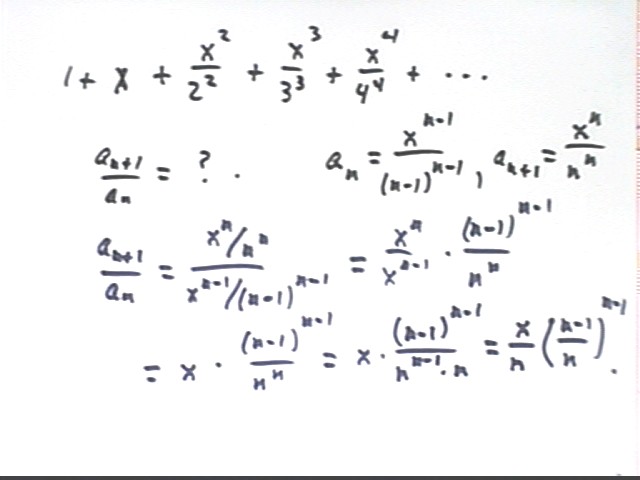 1 + x + x²/2² + x³/3³ + x⁴/4⁴ + ...
aₙ₊₁/aₙ = ? . aₙ = xⁿ⁻¹/(n-1)ⁿ⁻¹, aₙ₊₁ = xⁿ/nⁿ
aₙ₊₁/aₙ = (xⁿ/nⁿ)/(xⁿ⁻¹/(n-1)ⁿ⁻¹) = xⁿ/xⁿ⁻¹ · (n-1)ⁿ⁻¹/nⁿ
= x · (n-1)ⁿ⁻¹/nⁿ = x · (n-1)ⁿ⁻¹/(nⁿ⁻¹·n) = x/n ((n-1)/n)ⁿ⁻¹.